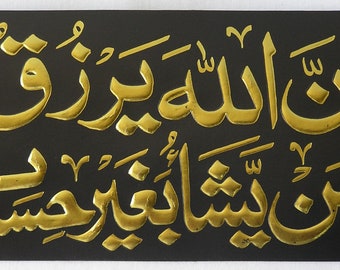 نَّ اللّٰهَ يَرْزُقُ
مَن يَّشَآءُ بِغَيْرِ حِسَابٍ